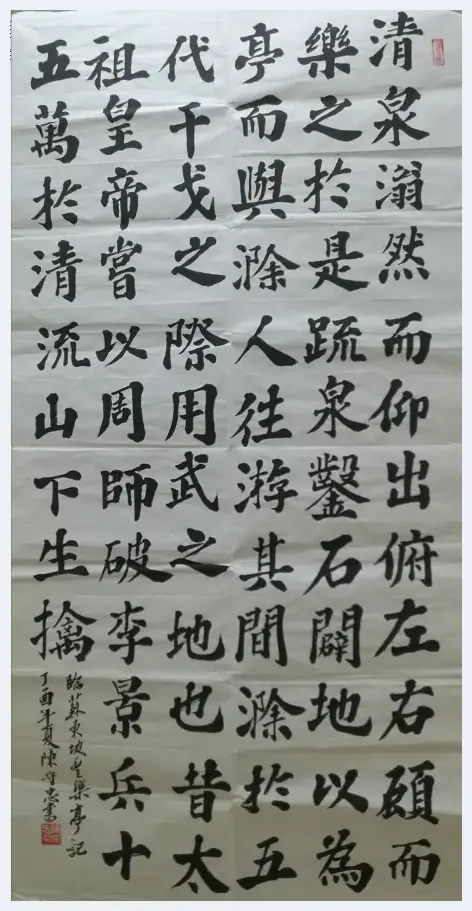 清泉滃然而仰出俯左右顧而
樂之於是疏泉鑿石闢地以為
亭而與滁人往游其間滁於五
代干戈之際用武之地也昔太
祖皇帝嘗以周師破李景兵十
五萬於清流山下生擒
臨蘇東坡豐樂亭記
丁酉年夏陳守忠書